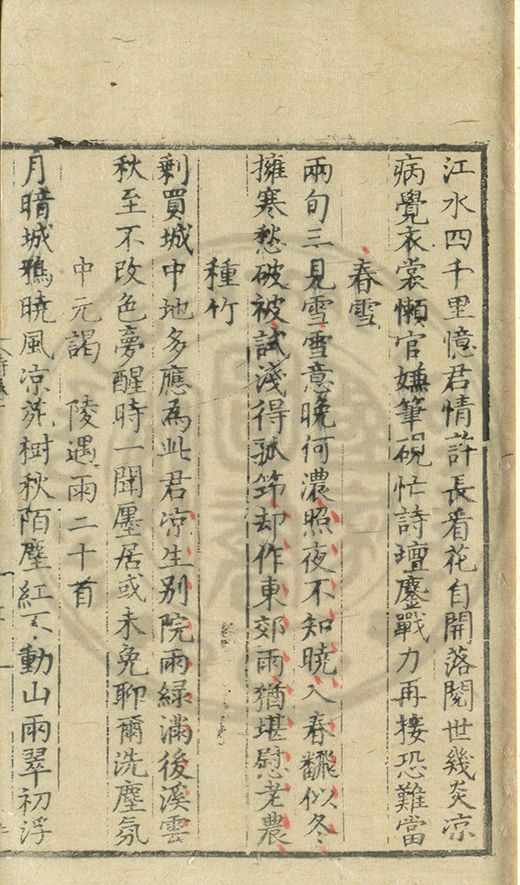 江水四千里憶君情許長看花自開落閱世幾炎凉
病覺衣裳懶官嫌筆硯忙詩壇鏖戰力再接恐難當
春雪
兩旬三見雪雪意晚何濃照夜不知曉入春飜似冬
擁寒愁破被試淺得孤筇却作東郊雨猶堪慰老農
種竹
剩買城中地多應為此君凉生别院雨綠滿後溪雲
秋至不改色夢醒時一聞壥居或未免聊爾洗塵氛
中元謁 陵遇雨二十首
月暗城鴉曉風凉苑樹秋陌塵紅不動山雨翠初浮